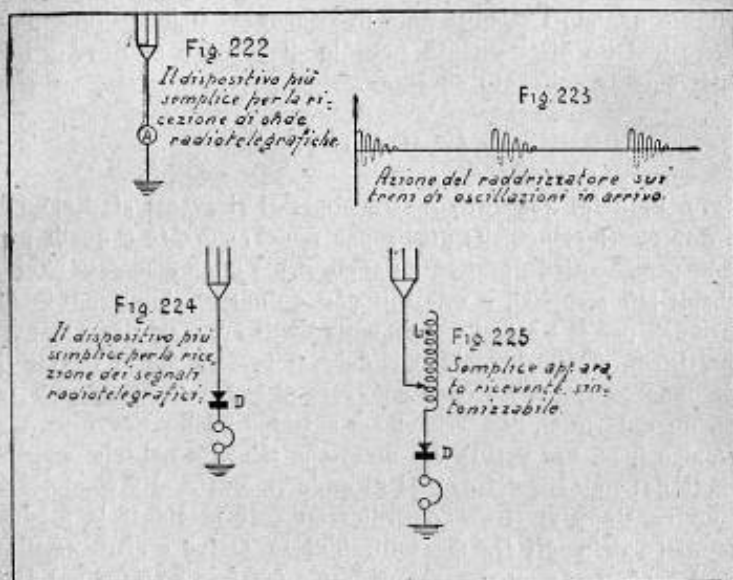 Fig. 222
Il dispositivo più
semplice per la ri-
cezione di onde
radiotelegrafiche.
A
Fig. 223
Azione del raddrizzatore sui
treni di oscillazioni in arrivo.
Fig. 224
Il dispositivo più
simplice per la rice-
zione dei segnali
radiotelegrafici.
D
L
Fig. 225
Semplice appara-
to ricevente sin-
tonizzabile.
D